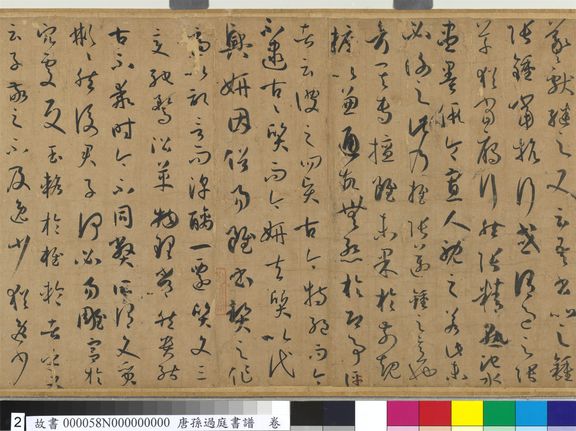 羲獻繼之又云吾書比之鍾
張鍾當抗行或謂過之張
草猶當鴈行然張精熟池水
盡墨假令寡人耽之若此未
必謝之此乃推張邁鍾之意也
考其專擅雖未果於前規
摭以兼通故無慚於即事評
者云彼之四賢古今特絕而今
不逮古古質而今妍夫質以代
興妍因俗易雖書契之作
適以記言而淳醨一遷質文三
變馳騖沿革物理常然貴能
古不乖時今不同弊所謂文質
彬彬然後君子何必易雕宮於
穴處反玉輅於椎輪者乎又
云子敬之不及逸少猶逸少
2 故書 000058N000000000 唐孫過庭書譜 卷